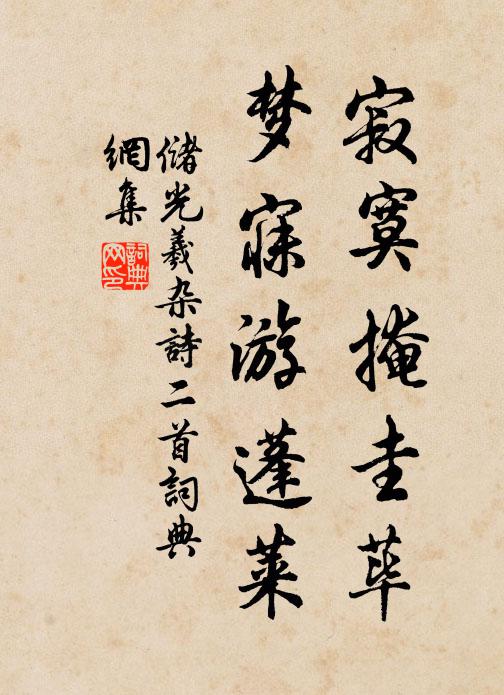 寂寞掩圭荜
梦寐游蓬莱
儲光羲杂詩二首詞典
網集
詞典网印